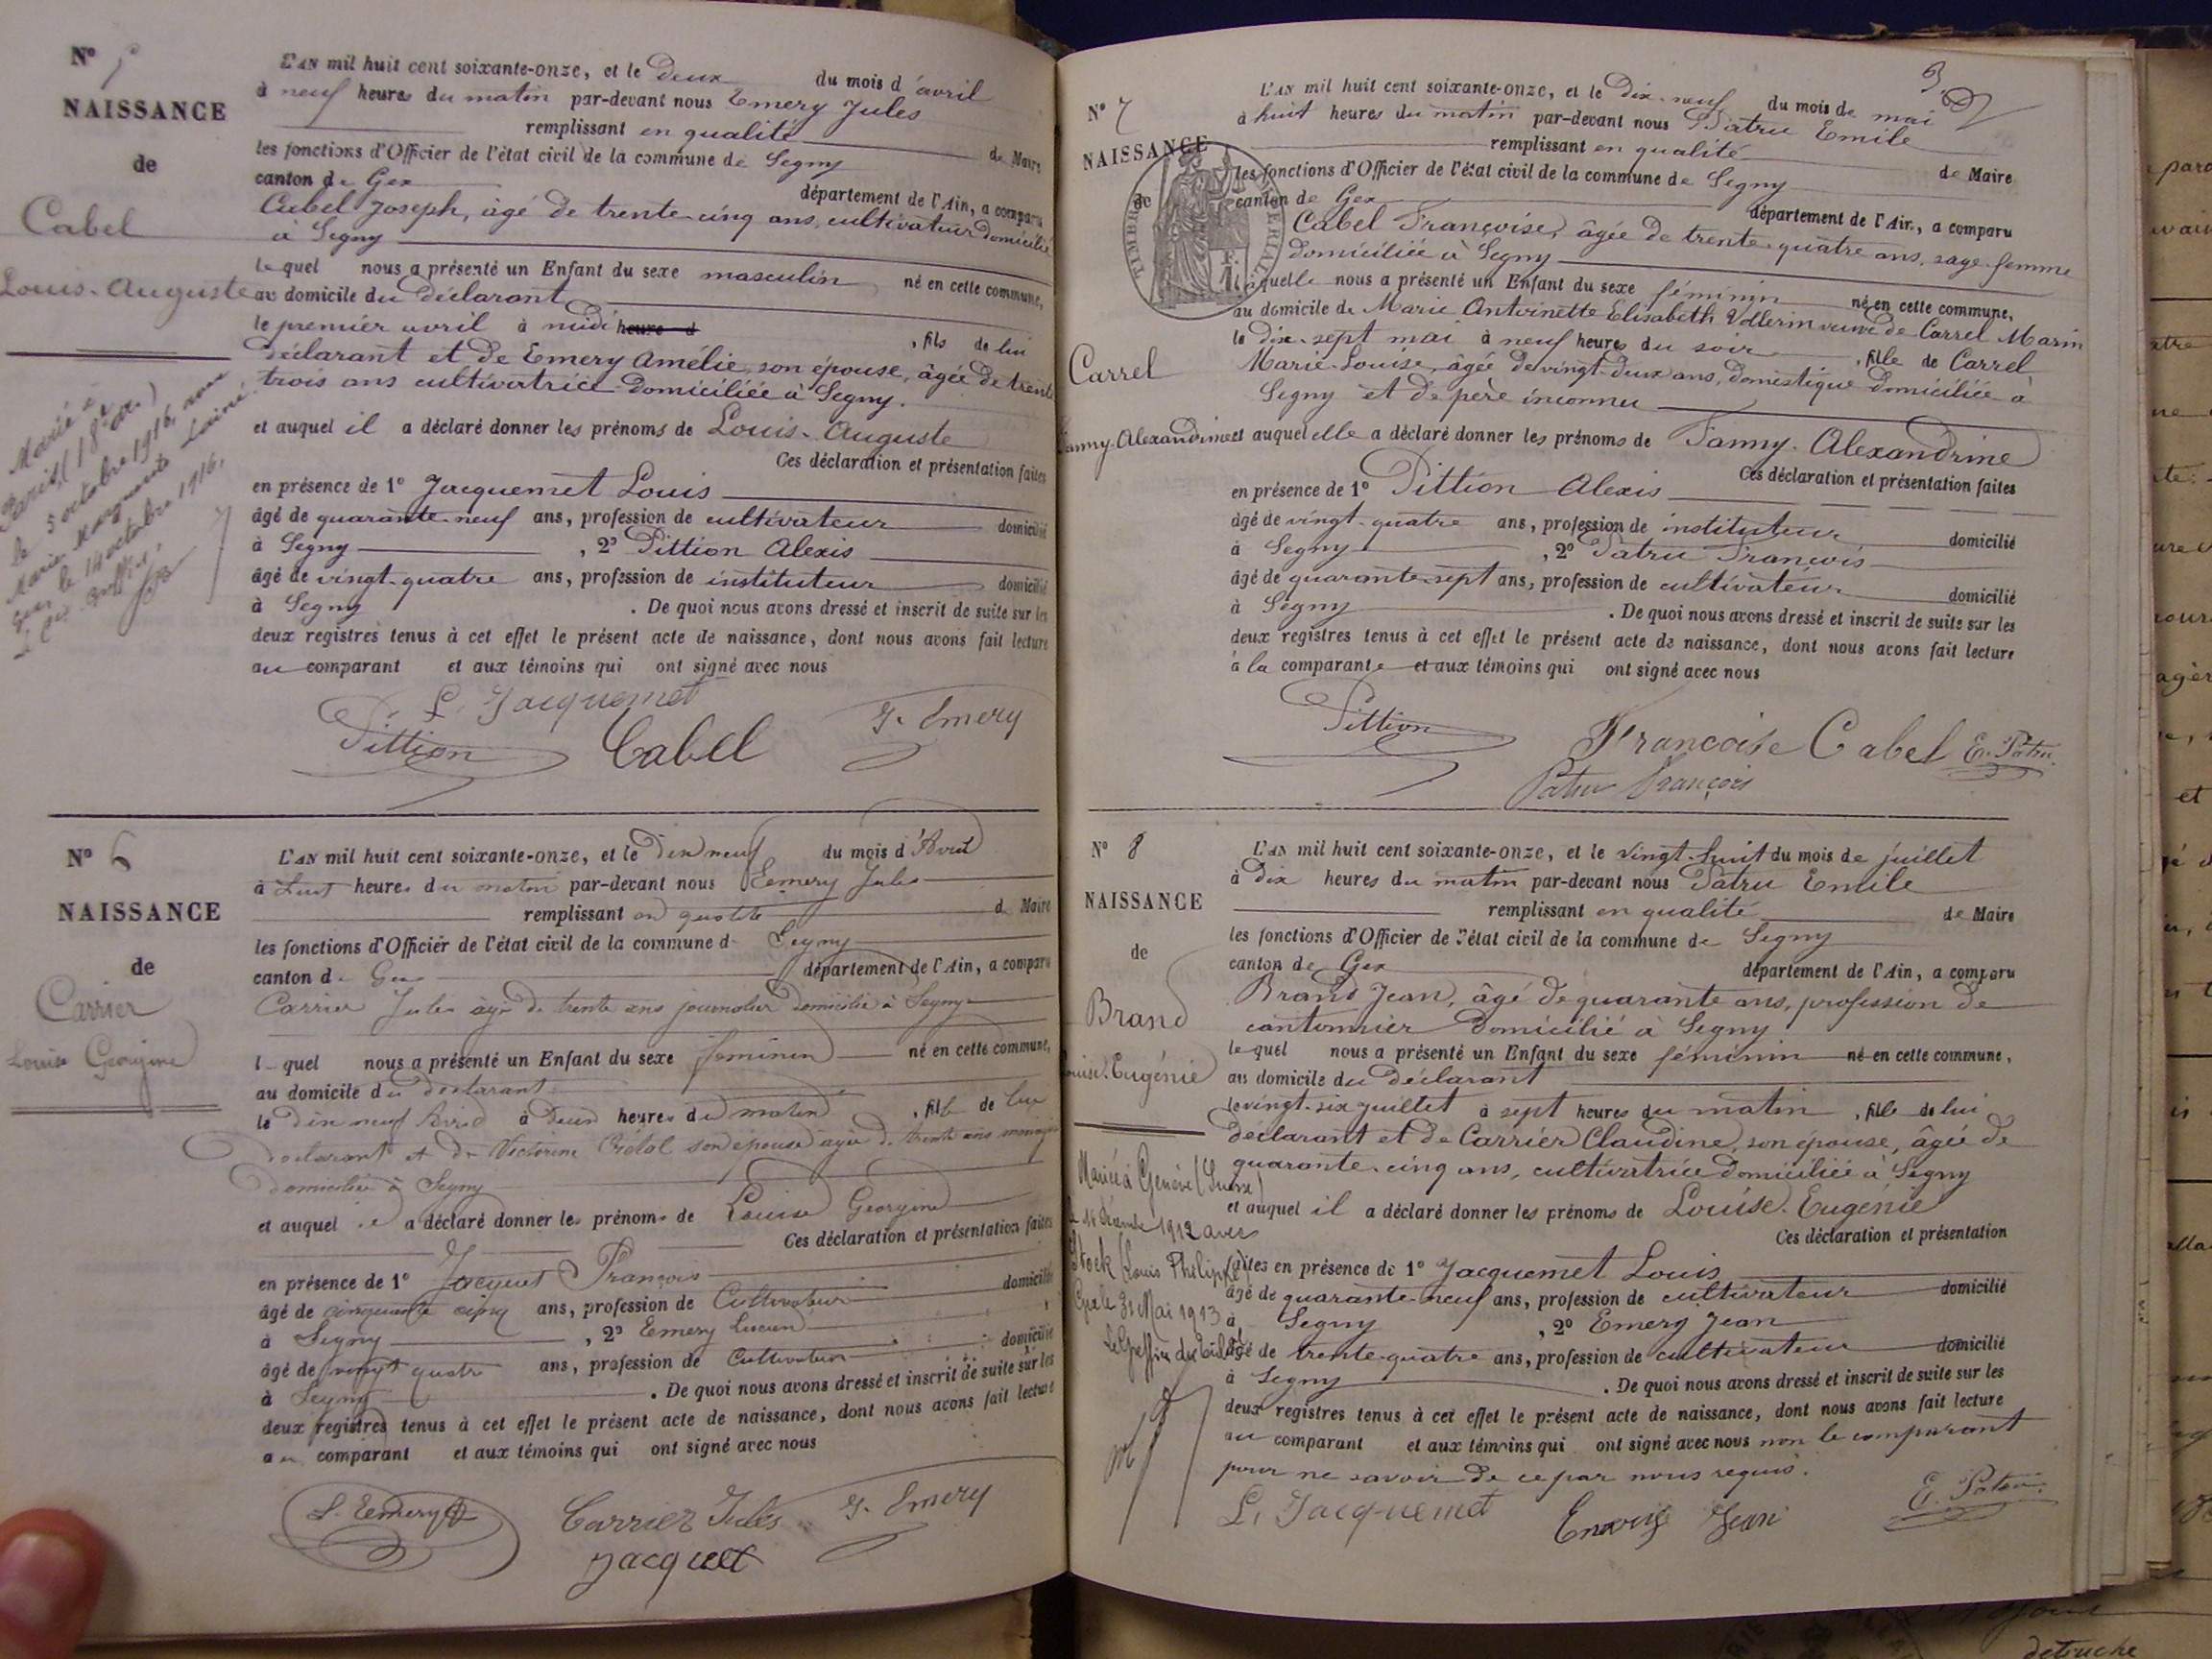 N° 5
NAISSANCE
de
Cabel
Louis-Auguste
Marié à
Paris (18e arr.)
le 5 octobre 1916, avec
Marie Marguerite Lainé.
Gex, le 14 octobre 1916.
L'AN mil huit cent soixante-onze, et le Deux du mois d'avril
à neuf heures du matin par-devant nous Emery Jules
remplissant en qualité de Maire
les fonctions d'Officier de l'état civil de la commune de Segny
canton de Gex département de l'Ain, a comparu
Cabel Joseph, âgé de trente-cinq ans, cultivateur domicilié
à Segny
lequel nous a présenté un Enfant du sexe masculin né en cette commune,
au domicile du déclarant
le premier avril à midi heure d , fils de lui
déclarant et de Emery Amélie, son épouse, âgée de trente
trois ans cultivatrice domiciliée à Segny.
et auquel il a déclaré donner les prénoms de Louis-Auguste
Ces déclaration et présentation faites
en présence de 1° Jacquemet Louis
âgé de quarante-neuf ans, profession de cultivateur domicilié
à Segny , 2° Pittion Alexis
âgé de vingt-quatre ans, profession de instituteur domicilié
à Segny . De quoi nous avons dressé et inscrit de suite sur les
deux registres tenus à cet effet le présent acte de naissance, dont nous avons fait lecture
au comparant et aux témoins qui ont signé avec nous
L. Jacquemet
Pittion Cabel J. Emery
N° 6
NAISSANCE
de
Carrier
Louise Georgine
L'AN mil huit cent soixante-onze, et le Dix neuf du mois d'Avril
à huit heures du matin par-devant nous Emery Jules
remplissant en qualité de Maire
les fonctions d'Officier de l'état civil de la commune d Segny
canton de Gex département de l'Ain, a comparu
Carrier Jules âgé de trente ans journalier domicilié à Segny
l quel nous a présenté un Enfant du sexe féminin né en cette commune,
au domicile du déclarant
le Dix neuf Avril à Deux heures du matin , fille de lui
déclarant et de Victorine son épouse âgée de trente ans
domiciliée à Segny
et auquel il a déclaré donner les prénoms de Louise Georgine
Ces déclaration et présentation faites
en présence de 1° Jacquet François
âgé de cinquante cinq ans, profession de Cultivateur domicilié
à Segny , 2° Emery Lucien
âgé de vingt quatre ans, profession de Cultivateur domicilié
à Segny . De quoi nous avons dressé et inscrit de suite sur les
deux registres tenus à cet effet le présent acte de naissance, dont nous avons fait lecture
au comparant et aux témoins qui ont signé avec nous
L. Emery Carrier Jules J. Emery
Jacquet
3
N° 7
NAISSANCE
de
TIMBRE IMPÉRIAL
Carrel
Fanny-Alexandrine
L'AN mil huit cent soixante-onze, et le Dix-neuf du mois de mai
à huit heures du matin par-devant nous Patru Emile
remplissant en qualité de Maire
les fonctions d'Officier de l'état civil de la commune de Segny
canton de Gex département de l'Ain, a comparu
Cabel Françoise, âgée de trente-quatre ans, sage-femme
domiciliée à Segny
laquelle nous a présenté un Enfant du sexe féminin né en cette commune,
au domicile de Marie Antoinette Elisabeth Vollerin veuve de Carrel Marin
le dix-sept mai à neuf heures du soir , fille de Carrel
Marie-Louise, âgée de vingt-deux ans, domestique domiciliée à
Segny et de père inconnu
et auquel elle a déclaré donner les prénoms de Fanny-Alexandrine
Ces déclaration et présentation faites
en présence de 1° Pittion Alexis
âgé de vingt-quatre ans, profession de instituteur domicilié
à Segny , 2° Patru François
âgé de quarante-sept ans, profession de cultivateur domicilié
à Segny . De quoi nous avons dressé et inscrit de suite sur les
deux registres tenus à cet effet le présent acte de naissance, dont nous avons fait lecture
à la comparante et aux témoins qui ont signé avec nous
Pittion Francoise Cabel E. Patru
Patru François
N° 8
NAISSANCE
de
Brand
Louise-Eugénie
Mariée à Genève (Suisse)
le 14 Décembre 1912 avec
Stock (Louis Philippe)
Gex le 31 Mai 1913
Le Greffier du Tribal
L'AN mil huit cent soixante-onze, et le vingt-huit du mois de juillet
à Dix heures du matin par-devant nous Patru Emile
remplissant en qualité de Maire
les fonctions d'Officier de l'état civil de la commune de Segny
canton de Gex département de l'Ain, a comparu
Brand Jean, âgé de quarante ans, profession de
cantonnier domicilié à Segny
lequel nous a présenté un Enfant du sexe féminin né en cette commune,
au domicile du déclarant
le vingt-six juillet à sept heures du matin , fille de lui
déclarant et de Carrier Claudine, son épouse, âgée de
quarante-cinq ans, cultivatrice domiciliée à Segny
et auquel il a déclaré donner les prénoms de Louise-Eugénie
Ces déclaration et présentation
faites en présence de 1° Jacquemet Louis
âgé de quarante-neuf ans, profession de cultivateur domicilié
à Segny , 2° Emery Jean
âgé de trente-quatre ans, profession de cultivateur domicilié
à Segny . De quoi nous avons dressé et inscrit de suite sur les
deux registres tenus à cet effet le présent acte de naissance, dont nous avons fait lecture
au comparant et aux témoins qui ont signé avec nous non le comparant
pour ne savoir de ce par nous requis.
L. Jacquemet Emery Jean E. Patru